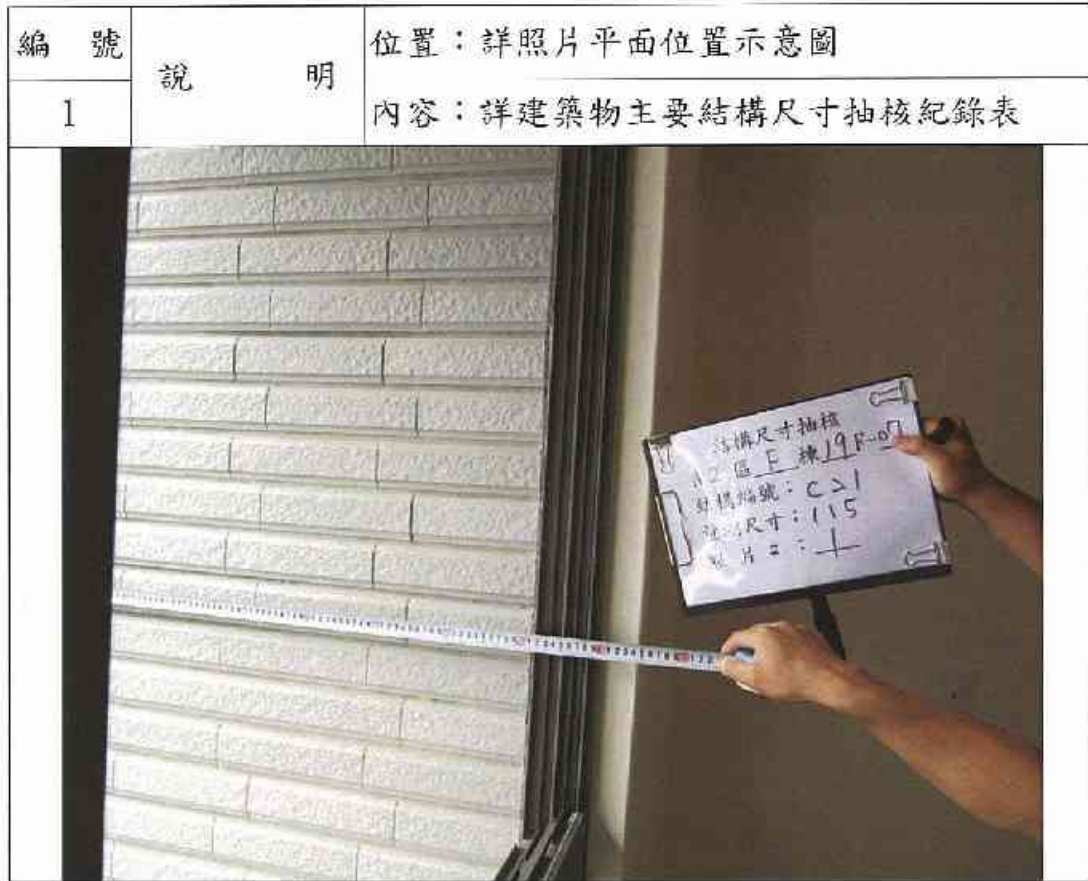 編 號
1
說 明
位置：詳照片平面位置示意圖
內容：詳建築物主要結構尺寸抽核紀錄表
結構尺寸抽核
A2 區 E 棟 19F-07
結構編號：C21
尺寸：115
片